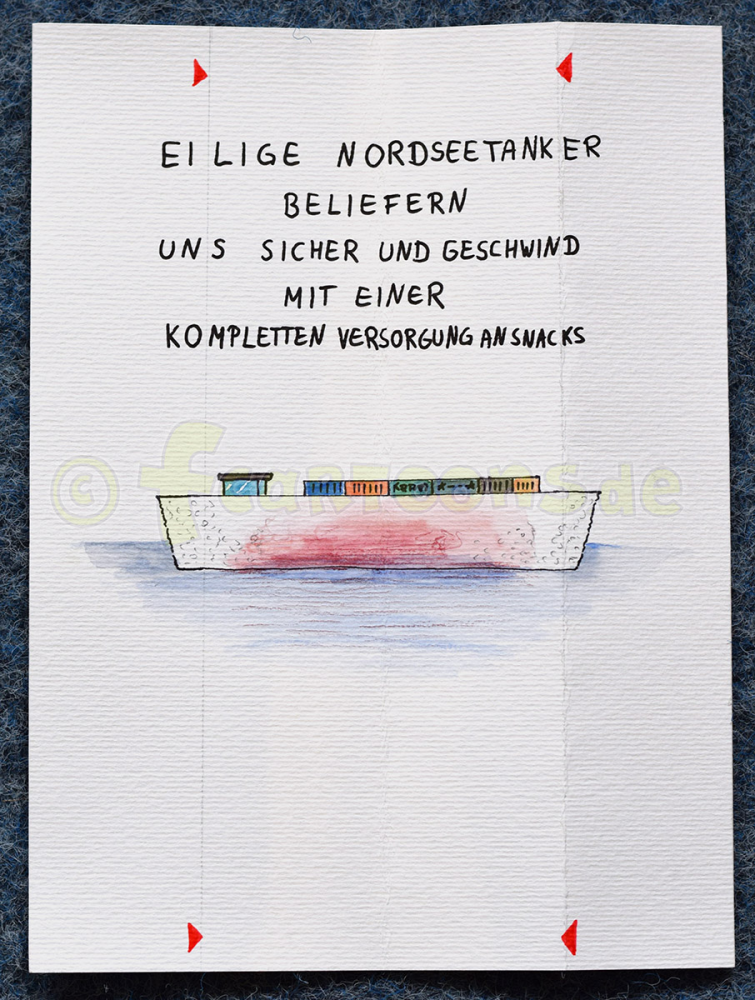 EILIGE NORDSEETANKER
BELIEFERN
UNS SICHER UND GESCHWIND
MIT EINER
KOMPLETTEN VERSORGUNG AN SNACKS
© fcartoons.de